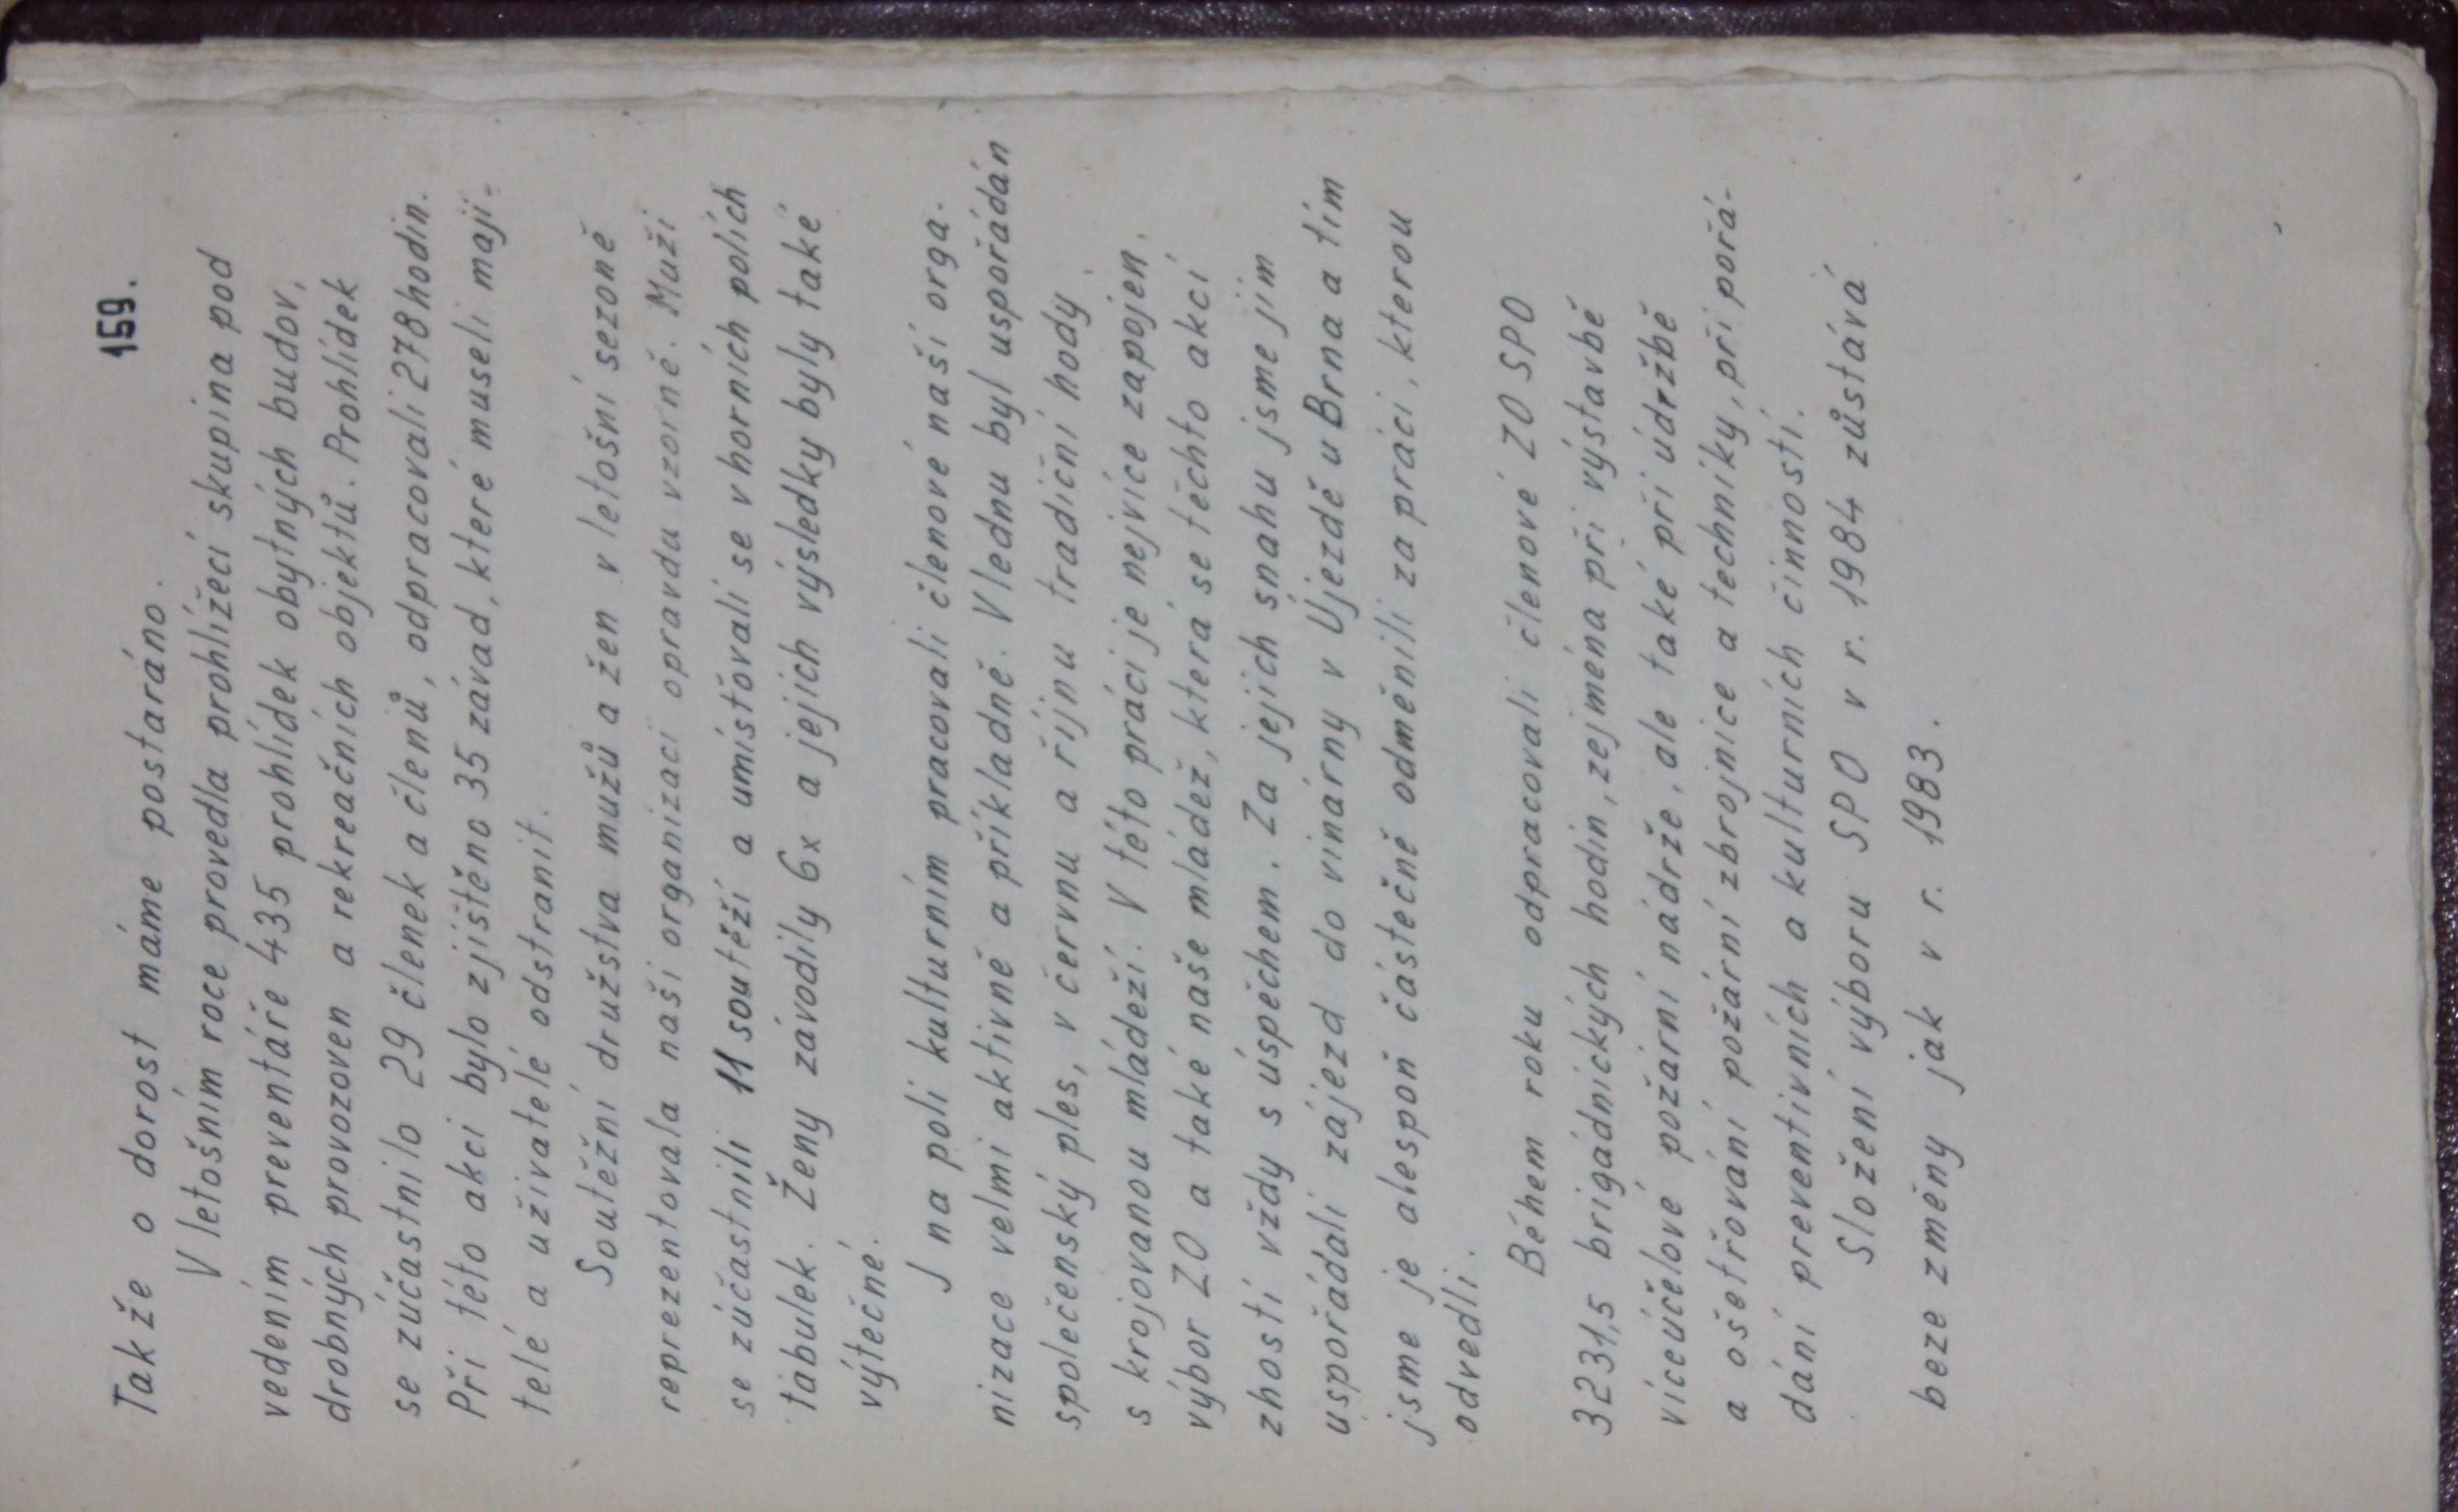 159.
Takže o dorost máme postaráno.
V letošním roce provedla prohlížecí skupina pod
vedením preventáře 435 prohlídek obytných budov,
drobných provozoven a rekreačních objektů. Prohlídek
se zúčastnilo 29 členek a členů, odpracovali 278 hodin.
Při této akci bylo zjištěno 35 závad, které museli maji-
telé a uživatelé odstranit.
Soutěžní družstva mužů a žen v letošní sezoně
reprezentovala naši organizaci opravdu vzorně. Muži
se zúčastnili 11 soutěží a umísťovali se v horních polích
tabulek. Ženy závodily 6x a jejich výsledky byly také
výtečné.
I na poli kulturním pracovali členové naší orga-
nizace velmi aktivně a příkladně. V lednu byl uspořádán
společenský ples, v červnu a říjnu tradiční hody
s krojovanou mládeží. V této práci je nejvíce zapojen
výbor ZO a také naše mládež, která se těchto akcí
zhostí vždy s úspěchem. Za jejich snahu jsme jim
uspořádali zájezd do vinárny v Újezdě u Brna a tím
jsme je alespoň částečně odměnili za práci, kterou
odvedli.
Během roku odpracovali členové ZO SPO
3231,5 brigádnických hodin, zejména při výstavbě
víceúčelové požární nádrže, ale také při údržbě
a ošetřování požární zbrojnice a techniky, při pořá-
dání preventivních a kulturních činností.
Složení výboru SPO v r. 1984 zůstává
beze změny jak v r. 1983.